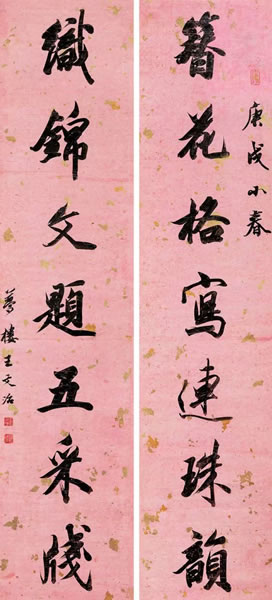 庚戌小春
簪花格寫連珠韻
織錦文題五采牋
夢樓王文治